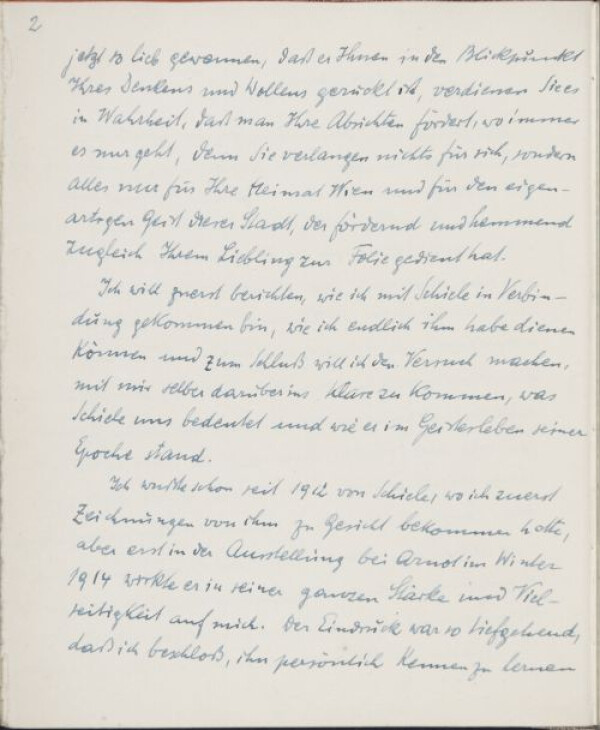 2
jetzt so lieb gewonnen, daß er Ihnen in den Blickpunkt
Ihres Denkens und Wollens gerückt ist, verdienen Sie es
in Wahrheit, daß man Ihre Absichten fördert, wo immer
es nur geht, denn Sie verlangen nichts für sich, sondern
alles nur für Ihre Heimat Wien und für den eigen-
artigen Geist dieser Stadt, der fördernd und hemmend
zugleich Ihrem Liebling zur Folie gedient hat.
Ich will zuerst berichten, wie ich mit Schiele in Verbin-
dung gekommen bin, wie ich endlich ihm habe dienen
können und zum Schluß will ich den Versuch machen,
mit mir selber darüber ins Klare zu kommen, was
Schiele uns bedeutet und wie er im Geistesleben seiner
Epoche stand.
Ich wußte schon seit 1912 von Schiele, wo ich zuerst
Zeichnungen von ihm zu Gesicht bekommen hatte,
aber erst in der Ausstellung bei Arnot im Winter
1914 wirkte er in seiner ganzen Stärke und Viel-
seitigkeit auf mich. Der Eindruck war so tiefgehend,
daß ich beschloß, ihn persönlich kennen zu lernen